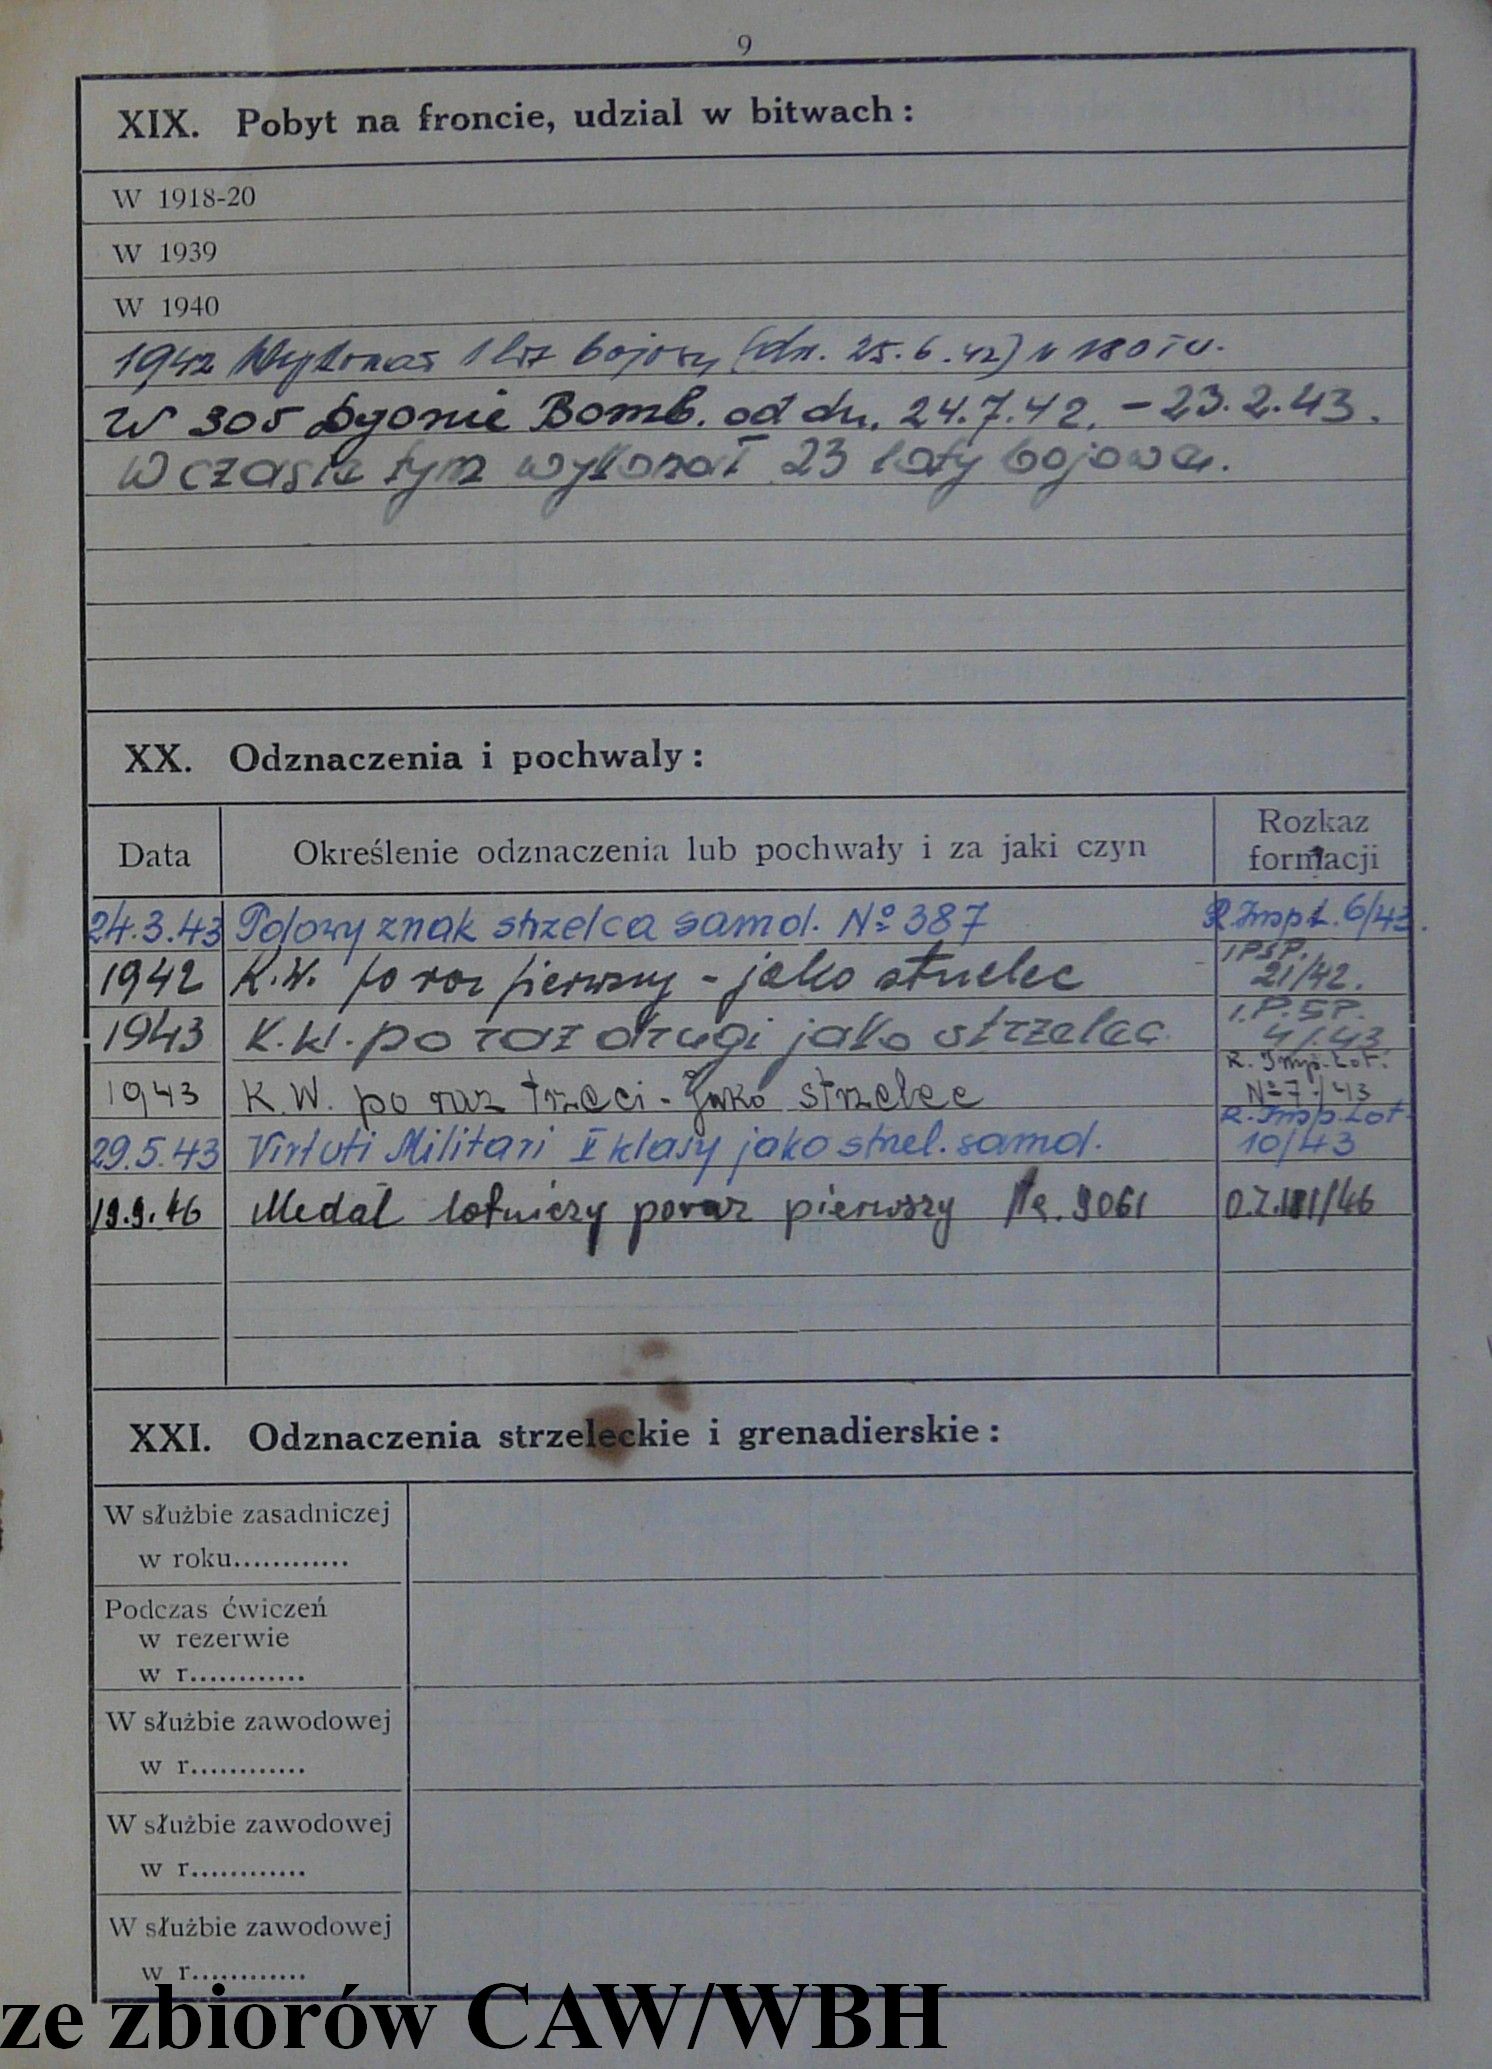 9
XIX. Pobyt na froncie, udzial w bitwach :
W 1918-20
W 1939
W 1940
1942 Wykonał 1 lot bojowy (dn. 25.6.42) w 18 OTU.
W 305 Dyonie Bomb. od dn. 24.7.42. – 23.2.43.
W czasie tym wykonał 23 loty bojowe.
XX. Odznaczenia i pochwaly :
Data
Określenie odznaczenia lub pochwały i za jaki czyn
Rozkaz
formacji
24.3.43 Polowy znak strzelca samol. No 387 R. Insp. L. 6/43.
1942 K.W. po raz pierwszy - jako strzelec I.P.S.P. 21/42.
1943 K.W. po raz drugi jako strzelec. I.P.S.P. 4/43
1943 K.W. po raz trzeci - jako strzelec R. Insp. Lot. No 7/43
29.5.43 Virtuti Militari V klasy jako strzel. samol. R. Insp. Lot. 10/43
19.9.46 Medal lotniczy po raz pierwszy Nr. 9061
XXI. Odznaczenia strzeleckie i grenadierskie :
W służbie zasadniczej
w roku............
Podczas ćwiczeń
w rezerwie
w r............
W służbie zawodowej
w r............
W służbie zawodowej
w r............
W służbie zawodowej
w r............
ze zbiorów CAW/WBH